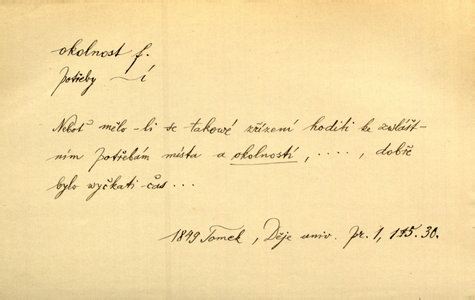 okolnost f.
potřeby ~í
Neboť mělo-li se takowé zřízení hoditi ke zwlášt-
ním potřebám místa a okolností, . . . ., dobře
bylo wyčkati čas . . .
1849 Tomek, Děje univ. pr. 1, 115. 30.